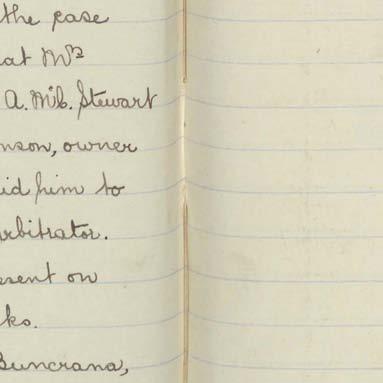 the case
at Mrs
A. McC. Stewart
nson, owner
id him to
rbitrator.
esent on
ks.
Buncrana,